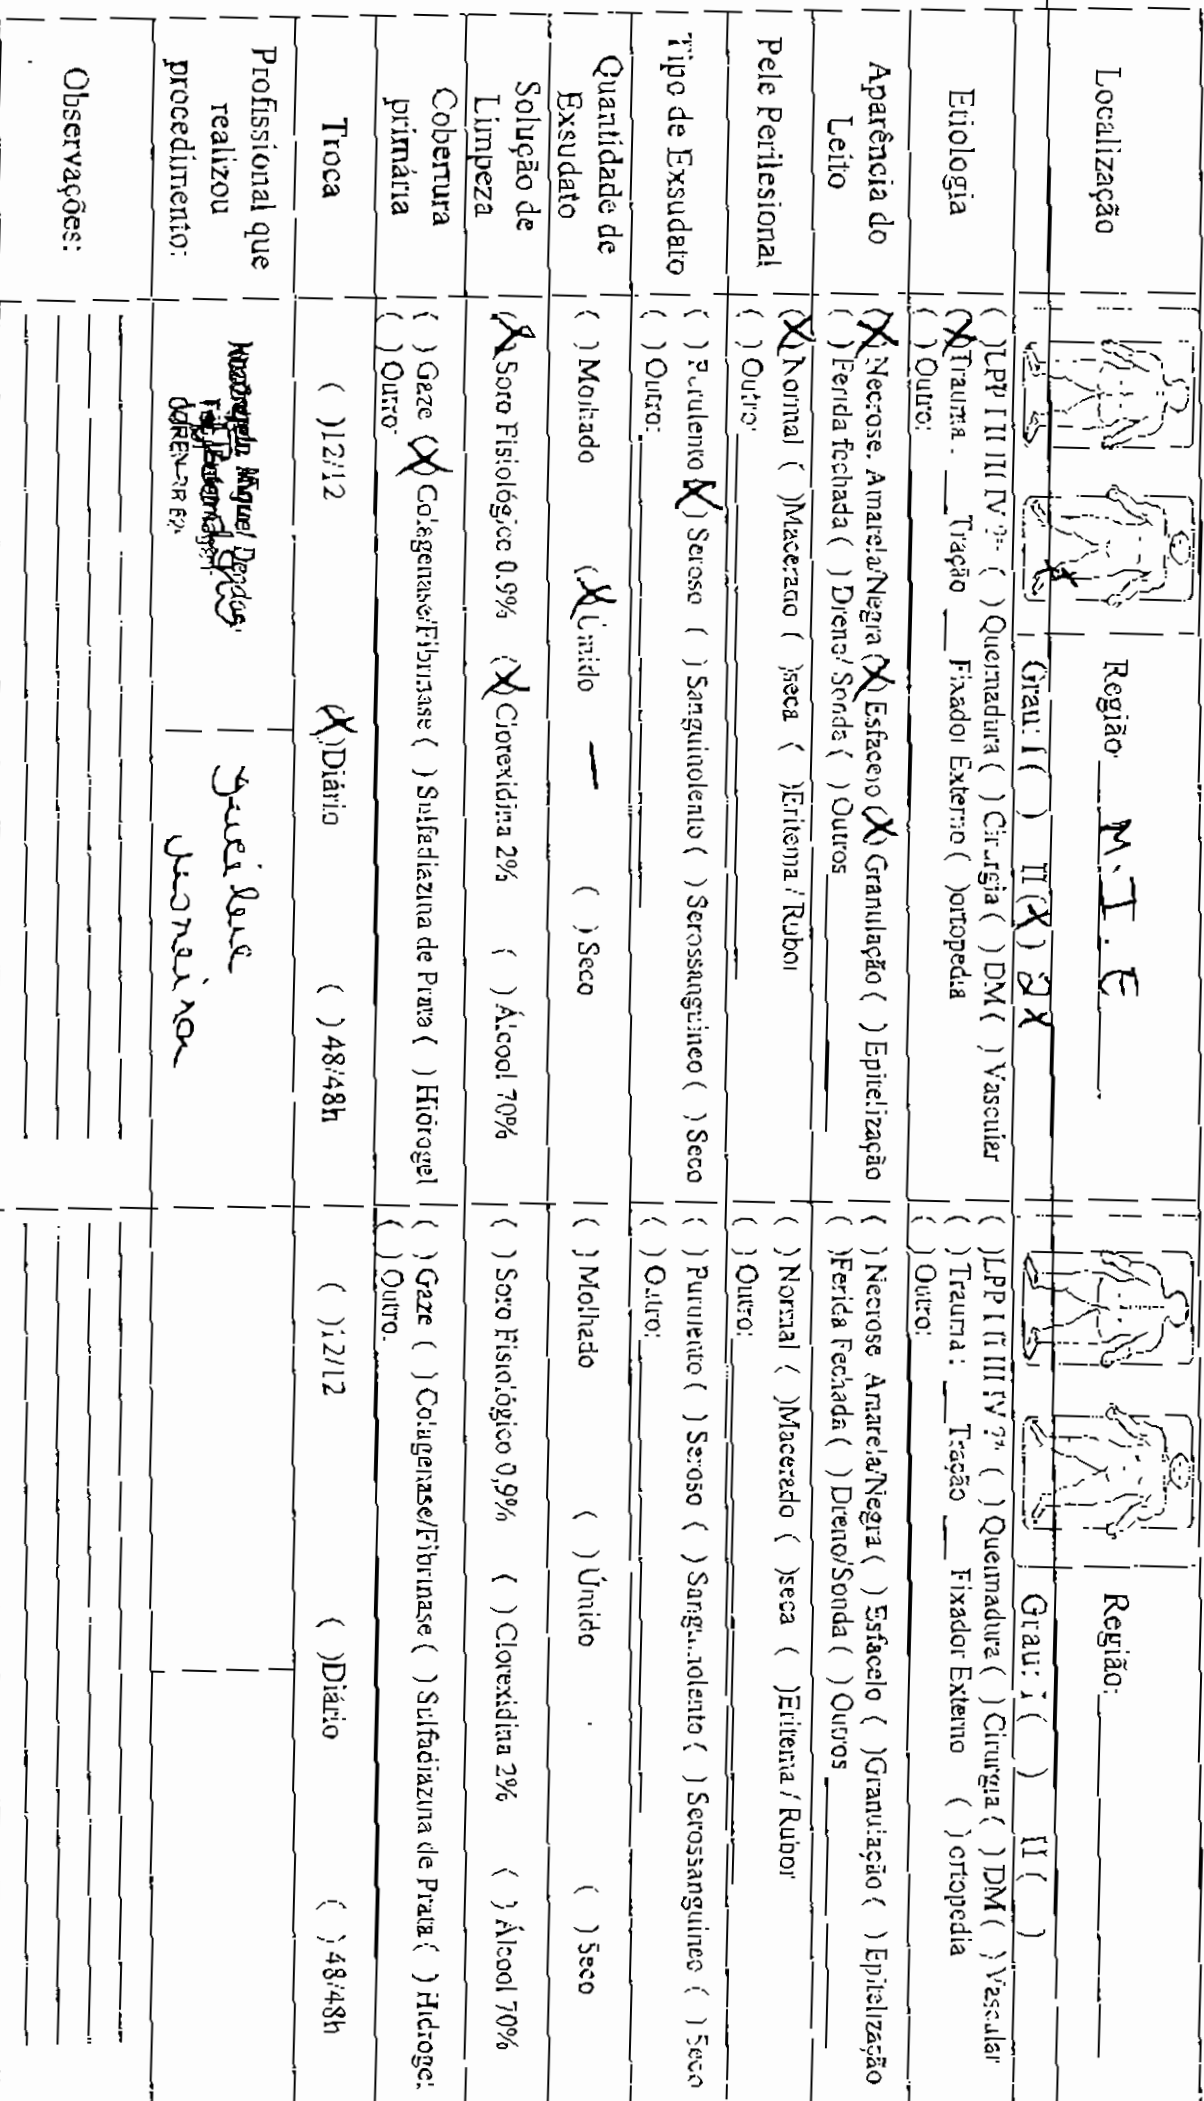 Localização
Região: M.I.E
Grau: I ( ) II (X) 2x
Região:
Grau: I ( ) II ( )
Etiologia
( )LPP I II III IV ?* ( ) Queimadura ( ) Cirurgia ( ) DM ( ) Vascular
(X)Trauma: __Tração __ Fixador Externo ( )ortopedia
( ) Outro:
( )LPP I II III IV ?* ( ) Queimadura ( ) Cirurgia ( ) DM ( ) Vascular
( ) Trauma: __Tração __ Fixador Externo ( ) ortopedia
( ) Outro:
Aparência do
Leito
(X) Necrose Amarela/Negra (X) Esfacelo (X) Granulação ( ) Epitelização
( ) Ferida fechada ( ) Dreno/ Sonda ( ) Outros
( ) Necrose Amarela/Negra ( ) Esfacelo ( )Granulação ( ) Epitelização
( )Ferida Fechada ( ) Dreno/Sonda ( ) Outros
Pele Perilesional
(X) Normal ( )Macerado ( )seca ( )Eritema / Rubor
( ) Outro:
( ) Normal ( )Macerado ( )seca ( )Eritema / Rubor
( ) Outro:
Tipo de Exsudato
( ) Purulento (X) Seroso ( ) Sanguinolento ( ) Serossanguineo ( ) Seco
( ) Outro:
( ) Purulento ( ) Seroso ( ) Sanguinolento ( ) Serossanguineo ( ) Seco
( ) Outro:
Quantidade de
Exsudato
( ) Molhado (X) Úmido ( ) Seco
( ) Molhado ( ) Úmido ( ) Seco
Solução de
Limpeza
(X) Soro Fisiológico 0.9% (X) Clorexidina 2% ( ) Álcool 70%
( ) Soro Fisiológico 0,9% ( ) Clorexidina 2% ( ) Álcool 70%
Cobertura
primária
( ) Gaze (X) Colagenase/Fibrinase ( ) Sulfadiazina de Prata ( ) Hidrogel
( ) Outro:
( ) Gaze ( ) Colagenase/Fibrinase ( ) Sulfadiazina de Prata ( ) Hidrogel
( ) Outro.
Troca
( )12/12 (X)Diário ( ) 48/48h
( )12/12 ( )Diário ( ) 48/48h
Profissional que
realizou
procedimento:
Miguel Dendas
Observações: